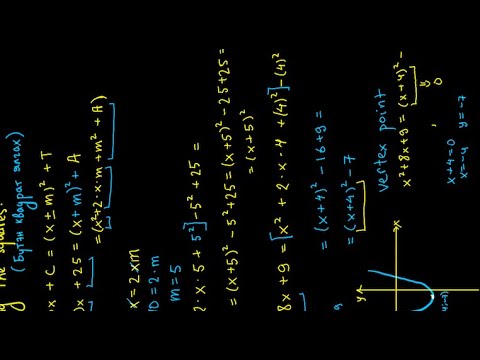 g The squares:
(Бүтэн квадрат ялгах)
x + C = (x ± m)² + T
x + 25 = (x + m)² + A
= (x² + 2·x·m + m² + A)
x = 2xm
10 = 2·m
m = 5
2·x·5 + 5²] - 5² + 25 =
= (x+5)² - 5² + 25 = (x+5)² - 25 + 25 =
= (x+5)²
8x + 9 = [x² + 2·x·4 + (4)²] - (4)²
= (x+4)² - 16 + 9 =
= (x+4)² - 7
9
vertex point
x² + 8x + 9 = (x+4)² -
0
x + 4 = 0
x = -4 , y = -7
y
x